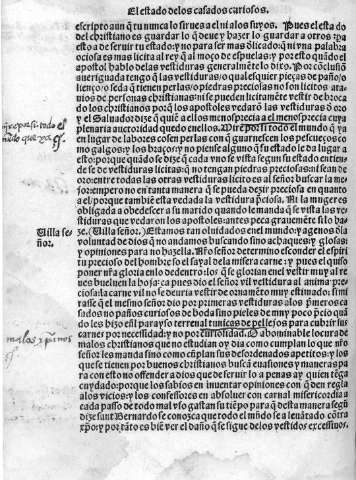 El estado delos casados curiosos.
escripto aun q̃ tu nunca lo firues a el ni alos suyos. Pues el esta do
del christiano es guardar lo q̃ deue y hazer lo guardar a otros
esto a de seruir tu estado: y no para ser mas
ociosa es mas licita al rey q̃ al moço de espuelas: y por esto quãdo el
apostol hablo delas vestiduras generalmẽte lo dixo. Por cõclusiõ
aueriguada tengo q̃ las vestiduras/o qualesquier pieças de paño/o
liẽço/o seda q̃ tienen perlas/o piedras preciosas no son licitos ata
uios de personas christianas: ni se pueden licitamẽte vestir de broca
do los christianos porq̃ los apostoles vedarõ las vestiduras de oro
y el Saluador dize q̃ quiẽ a ellos menosprecia a el menosprecia cuya
plenaria auctoridad quedo enellos. todo el mundo q̃ ya
en lugar de labores cosen perlas con q̃ guarnescen los pescueços co
mo galgos: y los braços: y no piense alguno q̃ su estado le da lugar a
esto: porque quãdo se dize q̃ cada vno se vista segun su estado entien
de se de vestiduras licitas: q̃ no tengan piedras preciosas: ni sean de
oro: entre todas las otras vestiduras licito es al señor buscar la me
jor: empero no en tanta manera q̃ se pueda dezir preciosa en quanto
a el: porque tambiẽ esta vedada la vestidura p̃ciosa. Ni la muger es
obligada a obedescer a su marido quando le manda q̃ se vista las ve
stiduras que vedaron los apostoles: antes peca grauemẽte si lo ha
ze. (Villa señor.) Estamos tan oluidados en el mundo: y agenos dla
voluntad de dios q̃ no andamos buscando sino achaques: y glosas:
y opiniones para no hazella. Nr̃o señor determino esconder el espiri
tu precioso del hombre so el sayal de la misera carne: y pues el quiso
poner nr̃a gloria enlo de dentro: los q̃ se glorian en el vestir muy al re
ues bueluen la hoja: ca pues dio el señor vil vestidura al anima pre
ciosa: la carne vil no se deuria vestir de ornamẽto muy estimado: si mi
rasse q̃ el mesmo señor dio por primeras vestiduras alos p̃meros ca
sados no paños curiosos de boda sino pieles de muy poco p̃cio quã
do les hizo enl parayso terrenal tunicas de pellejos para cubrir su
carne por necessidad: y no por curiosidad. O abominable locura de
malos christianos que no estudian oy dia como cumplan lo que nr̃o
señor les manda sino como cũplan sus desordenados apetitos: y los
que se tienen por buenos christianos buscã euasiones y maneras pa
ra con esto no offender a dios que de seruir lo a penas ay quien tẽga
cuydado: porque los sabios en inuentar opiniones con q̃ den regla
alos vicios: y los confessores en absoluer con carnal misericordia a
cada passo de todo mal vso gastan su tiẽpo para q̃ desta manera segũ
dize sant Bernardo se conozca que todo el mũdo se a leuãtado cõtra
xp̃o: y por tãto es biẽ ver el daño q̃ se sigue de los vestidos excessiuos.
Villa se
ñor.